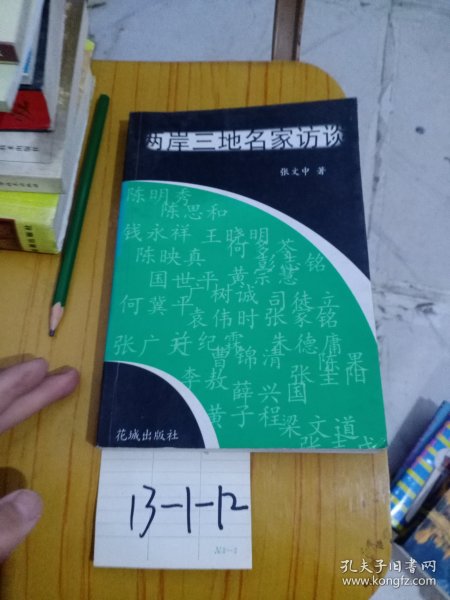 两岸三地名家访谈
张文中 著
陈明秀
陈思和
钱永祥 王晓明
何多苓
陈映真
彭志铭
国世平 黄宗慧
树诚 司徒立
何冀平
袁伟时 张家铭
张广
许纪霖 朱德庸
曹锦清 陈果
李敖 张圭阳
薛兴国
黄子程
梁文道
花城出版社
13-1-12
孔夫子旧书网
www.kongfz.com